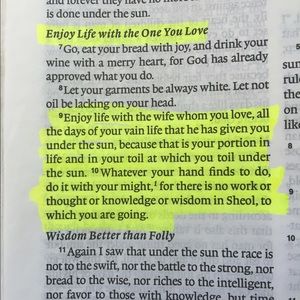 and forever they have no more
is done under the sun.
Enjoy Life with the One You Love
7Go, eat your bread with joy, and drink your
wine with a merry heart, for God has already
approved what you do.
8Let your garments be always white. Let not
oil be lacking on your head.
9Enjoy life with the wife whom you love, all
the days of your vain life that he has given you
under the sun, because that is your portion in
life and in your toil at which you toil under
the sun. 10Whatever your hand finds to do,
do it with your might,1 for there is no work or
thought or knowledge or wisdom in Sheol, to
which you are going.
Wisdom Better than Folly
11Again I saw that under the sun the race is
not to the swift, nor the battle to the strong, nor
bread to the wise, nor riches to the intelligent,
nor favor to those with knowledge, but time
sun
rule
on
like
8
9
10